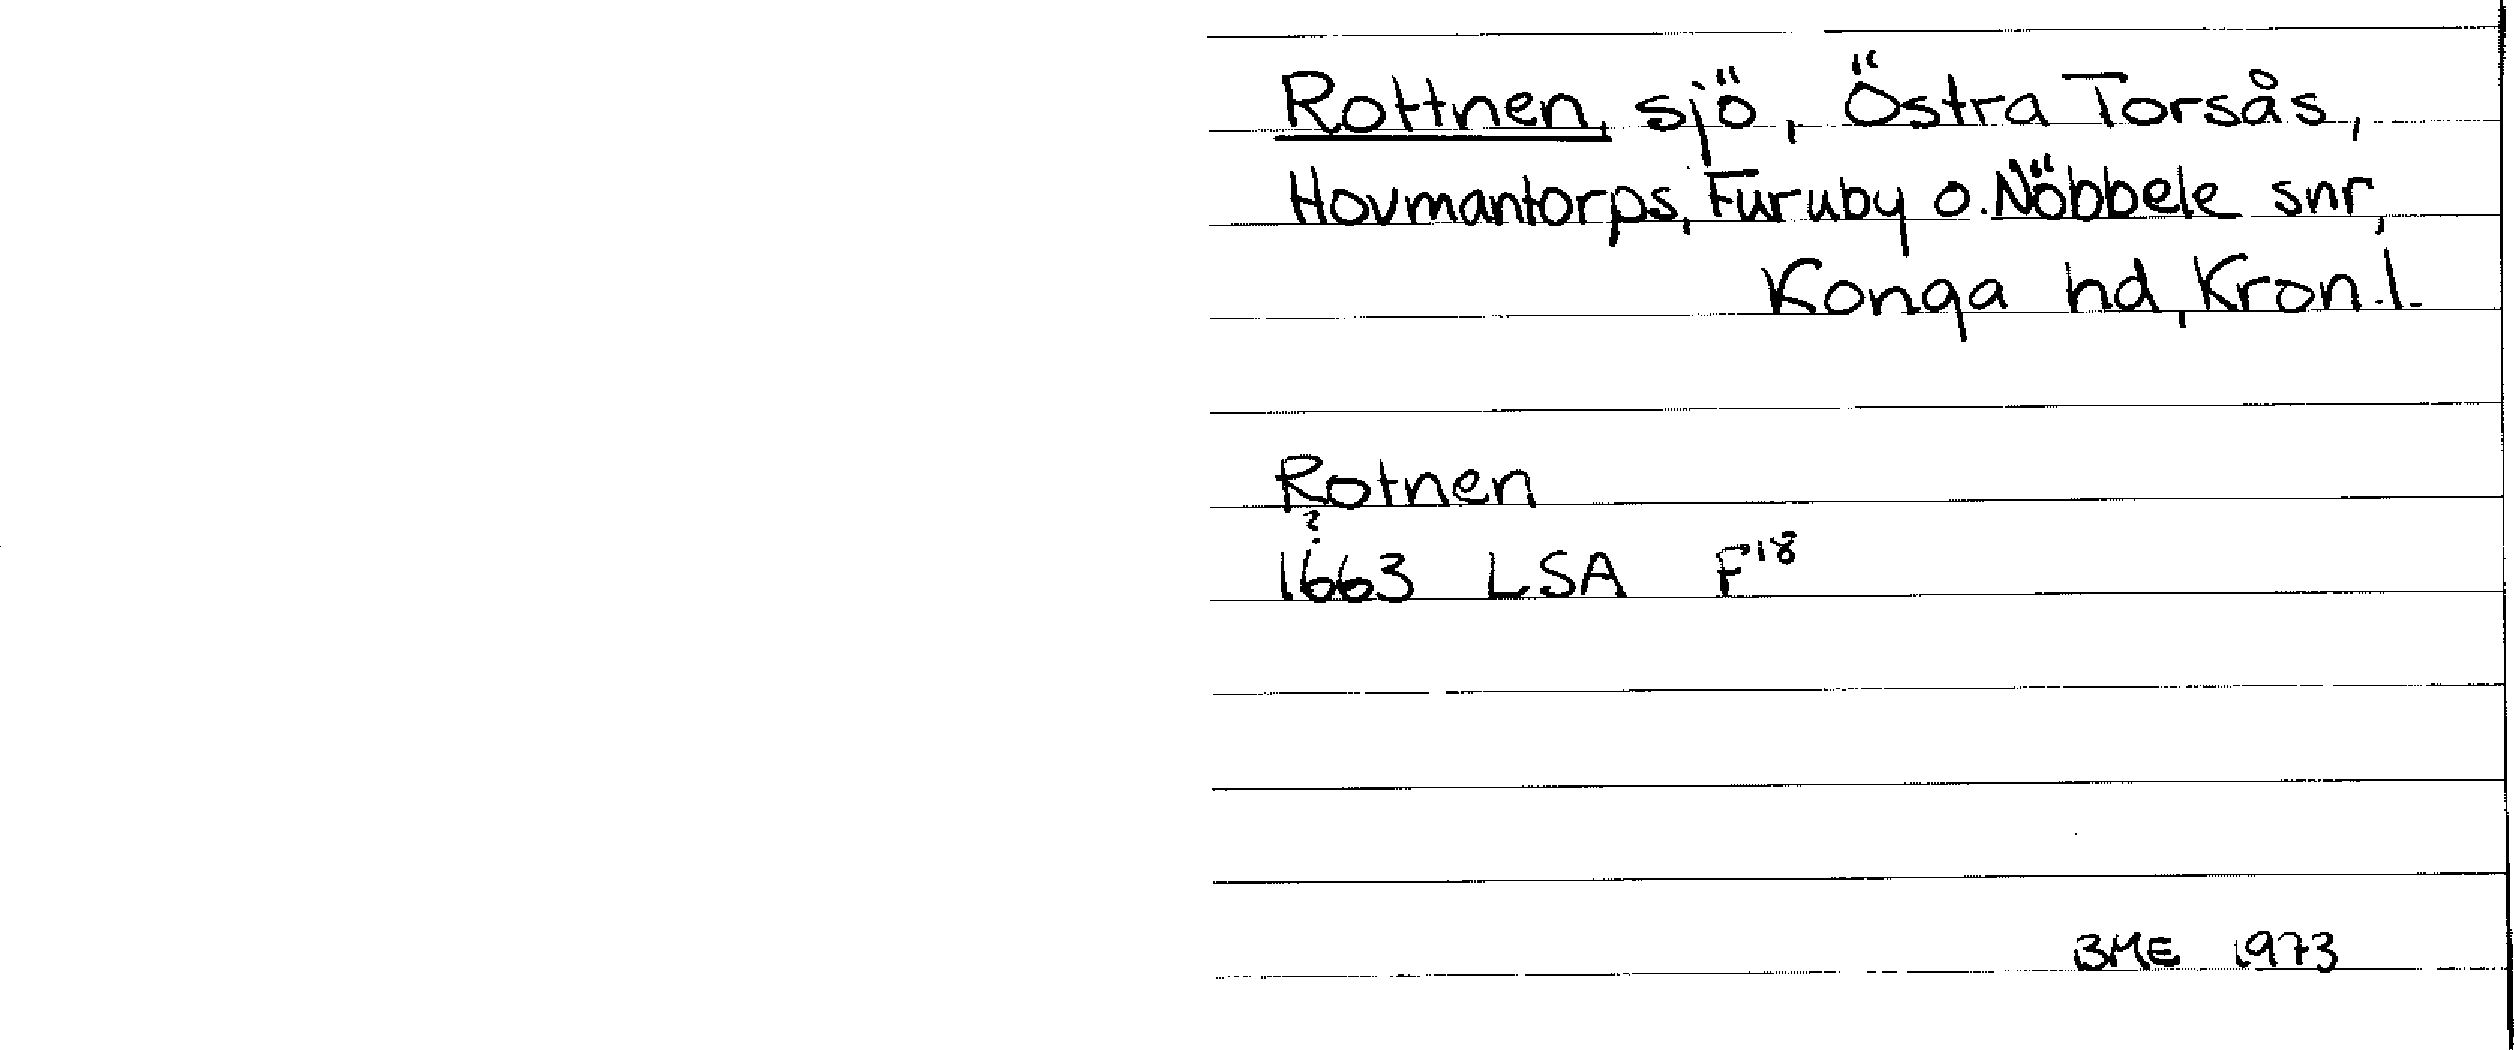 Rottnen, sjö, Östra Torsås,
Hovmantorps, Furuby o. Nöbbele snr,
Konga hd, Kron.l.
Rotnen
?
1663 LSA F 18
BME 1973